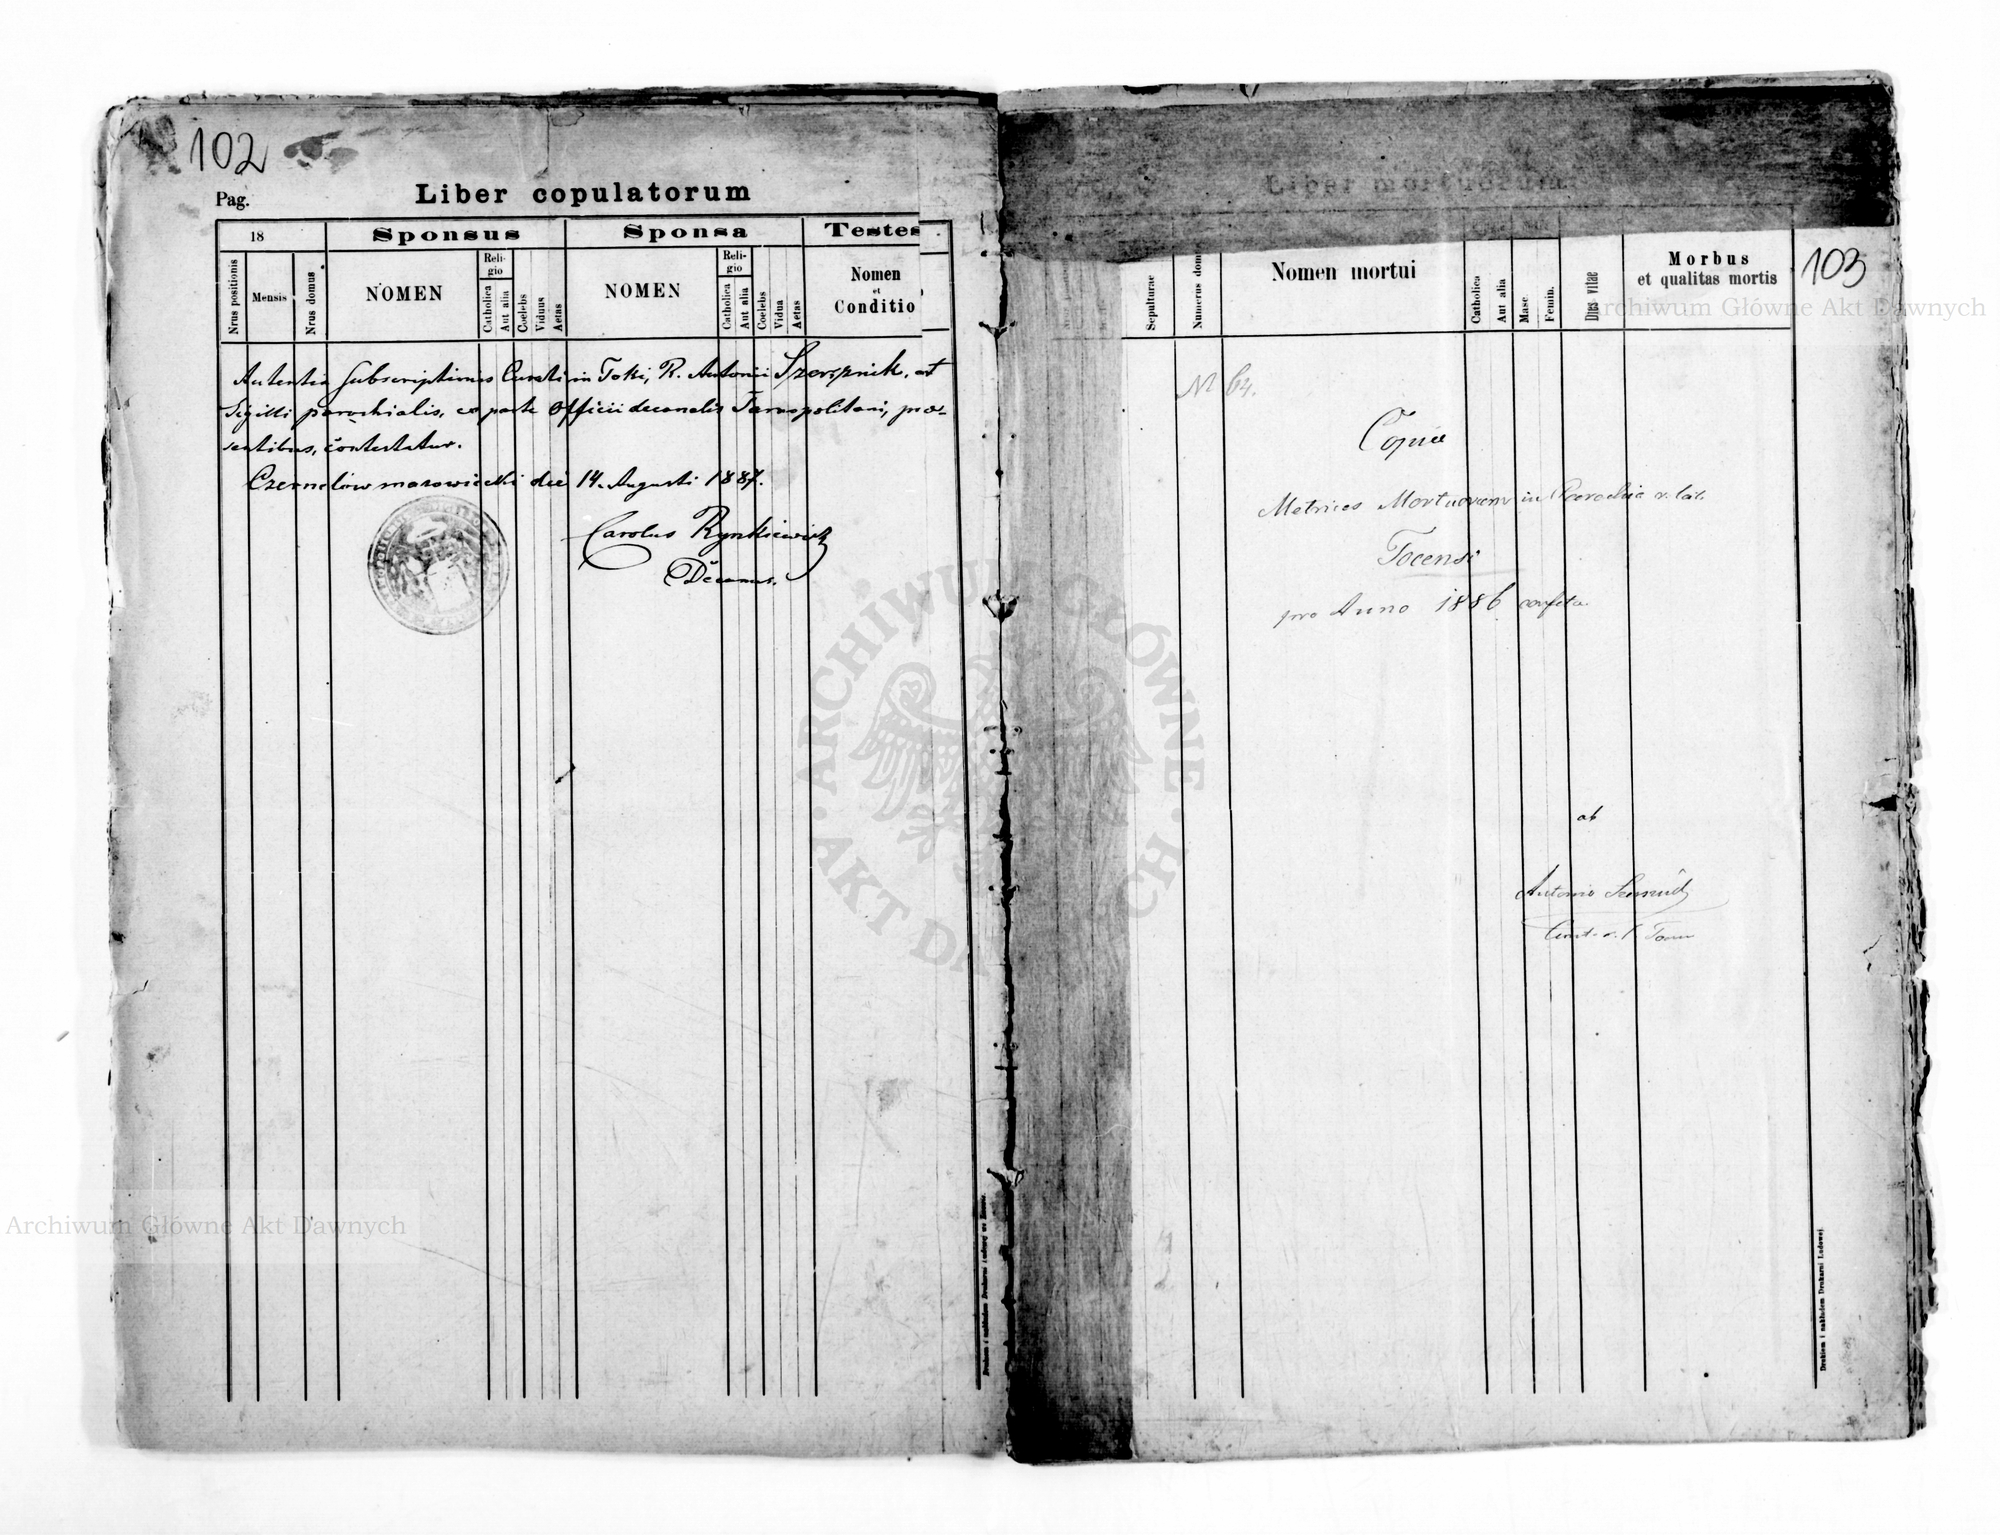 102
Pag.
Liber copulatorum
18
Sponsus
Sponsa
Testes
Nrus positionis
Mensis
Nrus domus
NOMEN
Religio
Catholica
Aut alia
Coelebs
Viduus
Aetas
NOMEN
Religio
Catholica
Aut alia
Coelebs
Vidua
Aetas
Nomen
et
Conditio
Subscriptionis Curati in Toki, R. Antonii et
Sigilli parochialis, ex parte Officii decanalis Tarnopoliensis, prae-
sentibus, contestatur.
Czernelów mazowiecki die 14. Augusti 1887.
Carolus Rynkiewicz
Decanus.
Drukiem i nakładem Drukarni Ludowej we Lwowie.
103
Liber mortuorum
Sepulturae
Numerus domus
Nomen mortui
Catholica
Aut alia
Masc.
Femin.
Dies vitae
Morbus
et qualitas mortis
N 64.
Copia
Metrices Mortuorum in Parochia r. lat.
Tocensi
pro Anno 1886 confecta
ab
Antonio
Drukiem i nakładem Drukarni Ludowej
Archiwum Główne Akt Dawnych
Archiwum Główne Akt Dawnych
ARCHIWUM GŁÓWNE · AKT DAWNYCH ·